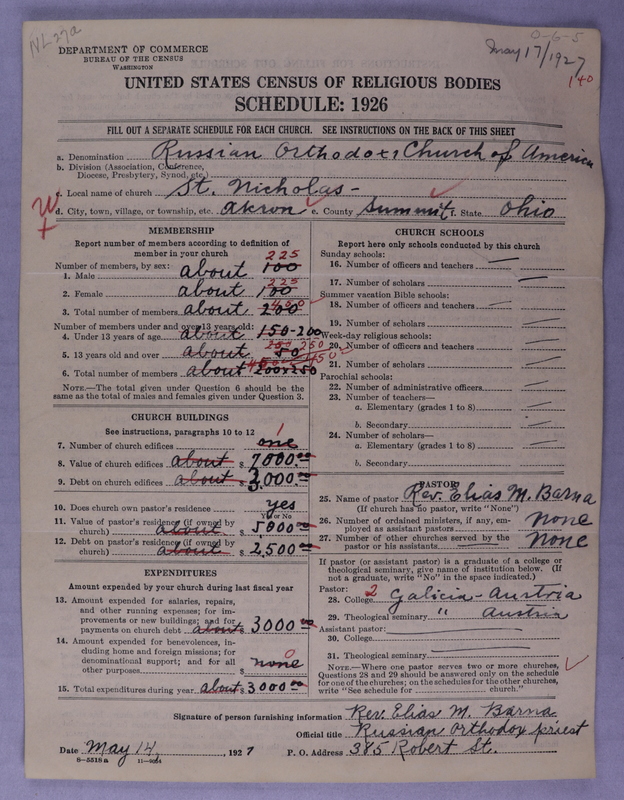 NL 27a
0-6-5
May 17/1927
140
DEPARTMENT OF COMMERCE
BUREAU OF THE CENSUS
WASHINGTON
UNITED STATES CENSUS OF RELIGIOUS BODIES
SCHEDULE: 1926
FILL OUT A SEPARATE SCHEDULE FOR EACH CHURCH. SEE INSTRUCTIONS ON THE BACK OF THIS SHEET
a. Denomination Russian Orthodox Church of America
b. Division (Association, Conference,
Diocese, Presbytery, Synod, etc.)
c. Local name of church St. Nicholas-
d. City, town, village, or township, etc. Akron e. County Summit f. State Ohio
MEMBERSHIP
Report number of members according to definition of
member in your church
Number of members, by sex:
225
1. Male about 100
225
2. Female about 100
450
3. Total number of members about 200
Number of members under and over 13 years old:
4. Under 13 years of age about 150-200
200 250
5. 13 years old and over about 50
450 450
6. Total number of members about 200-250
NOTE.—The total given under Question 6 should be
the same as the total of males and females given under Question 3.
CHURCH BUILDINGS
See instructions, paragraphs 10 to 12
1
7. Number of church edifices one
8. Value of church edifices about $ 7000.00
9. Debt on church edifices about $ 3,000.00
10. Does church own pastor's residence yes
Yes or No
11. Value of pastor's residence (if owned by
church) about $ 5000.00
12. Debt on pastor's residence (if owned by
church) about $ 2,500.00
EXPENDITURES
Amount expended by your church during last fiscal year
13. Amount expended for salaries, repairs,
and other running expenses; for im-
provements or new buildings; and for
payments on church debt about $ 3000.00
14. Amount expended for benevolences, in-
cluding home and foreign missions; for
denominational support; and for all
0
other purposes $ none
15. Total expenditures during year about $ 3000.00
CHURCH SCHOOLS
Report here only schools conducted by this church
Sunday schools:
16. Number of officers and teachers —
17. Number of scholars —
Summer vacation Bible schools:
18. Number of officers and teachers —
19. Number of scholars —
Week-day religious schools:
20. Number of officers and teachers —
21. Number of scholars —
Parochial schools:
22. Number of administrative officers —
23. Number of teachers—
a. Elementary (grades 1 to 8) —
b. Secondary —
24. Number of scholars—
a. Elementary (grades 1 to 8) —
b. Secondary —
PASTOR
25. Name of pastor Rev. Elias M. Barna
(If church has no pastor, write "None")
26. Number of ordained ministers, if any, em-
ployed as assistant pastors none
27. Number of other churches served by the
pastor or his assistants none
If pastor (or assistant pastor) is a graduate of a college or
theological seminary, give name of institution below. (If
not a graduate, write "No" in the space indicated.)
Pastor:
28. College 2 Galicia-Austria
29. Theological seminary " Austria
Assistant pastor:
30. College
31. Theological seminary
NOTE.—Where one pastor serves two or more churches,
Questions 28 and 29 should be answered only on the schedule
for one of the churches; on the schedules for the other churches,
write "See schedule for church."
Signature of person furnishing information Rev. Elias M. Barna
Official title Russian Orthodox priest
Date May 14, 1927 P. O. Address 385 Robert St.
8-5518a